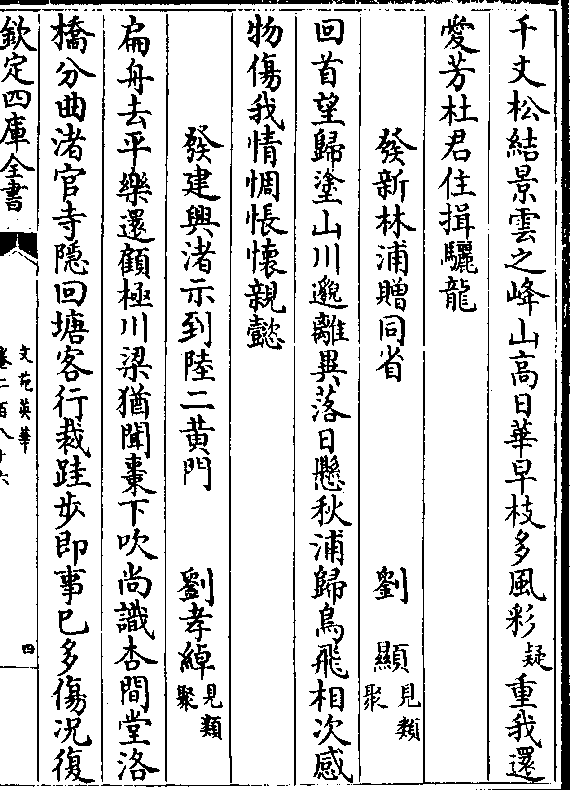 千丈松結景雲之峰山高日華早枝多風彩疑重我還
愛芳杜君住揖驪龍
發新林浦贈同省 劉顯見類聚
回首望歸塗山川邈離異落日懸秋浦歸鳥飛相次感
物傷我情惆悵懷親懿
發建興渚示到陸二黃門 劉孝綽見類聚
扁舟去平樂還顧極川梁猶聞棗下吹尚識杏間堂洛
橋分曲渚官寺隱回塘客行裁跬步即事已多傷況復
欽定四庫全書
文苑英華
卷二百八十六
四